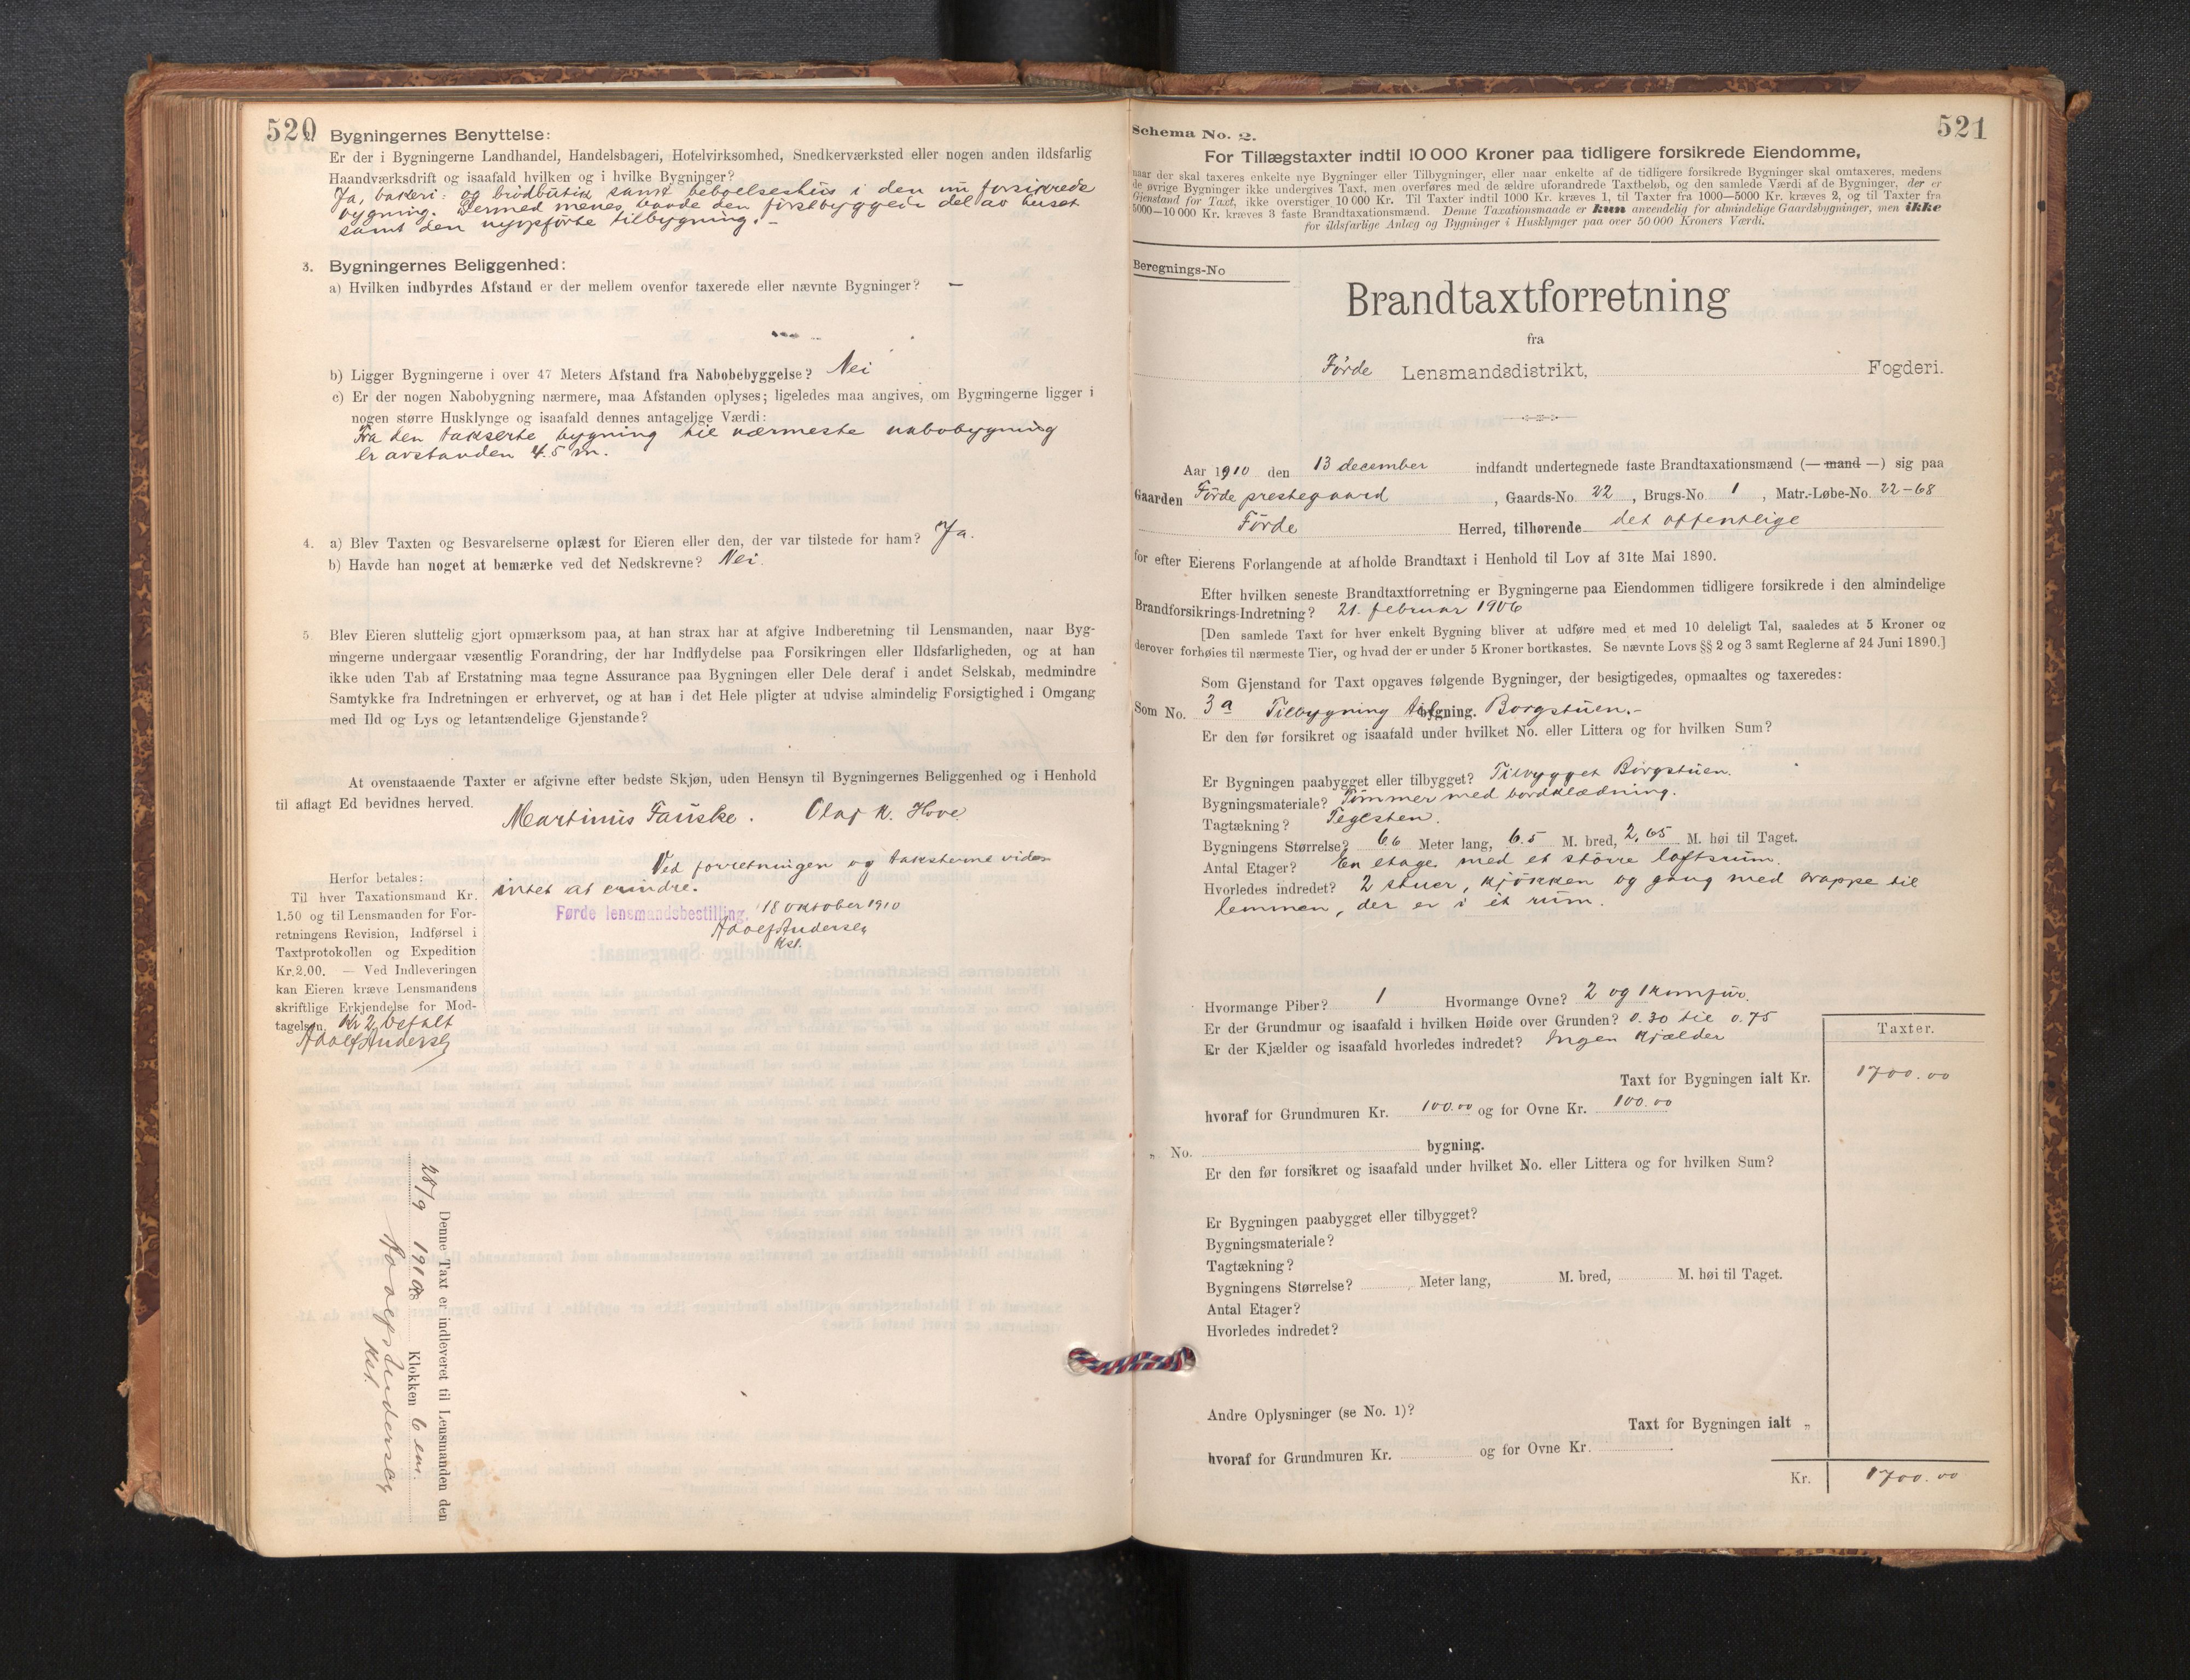 520
Bygningernes Benyttelse:
Er der i Bygningerne Landhandel, Handelsbageri, Hotelvirksomhed, Snedkerværksted eller nogen anden ildsfarlig
Haandværksdrift og isaafald hvilken og i hvilke Bygninger?
Ja, bakeri- og brödbutik samt beboelseshus i den nu forsikrede
bygning. Dermed menes baade den förstbyggede del av huset
samt den nyopförte tilbygning. -
3. Bygningernes Beliggenhed:
a) Hvilken indbyrdes Afstand er der mellem ovenfor taxerede eller nævnte Bygninger? —
b) Ligger Bygningerne i over 47 Meters Afstand fra Nabobebyggelse? Nei
c) Er der nogen Nabobygning nærmere, maa Afstanden oplyses; ligeledes maa angives, om Bygningerne ligger i
nogen større Husklynge og isaafald dennes antagelige Værdi:
Fra den takserte bygning til nærmeste nabobygning
er avstanden 4.5 m.
4. a) Blev Taxten og Besvarelserne oplæst for Eieren eller den, der var tilstede for ham? Ja.
b) Havde han noget at bemærke ved det Nedskrevne? Nei.
5. Blev Eieren sluttelig gjort opmærksom paa, at han strax har at afgive Indberetning til Lensmanden, naar Byg-
ningerne undergaar væsentlig Forandring, der har Indflydelse paa Forsikringen eller Ildsfarligheden, og at han
ikke uden Tab af Erstatning maa tegne Assurance paa Bygningen eller Dele deraf i andet Selskab, medmindre
Samtykke fra Indretningen er erhvervet, og at han i det Hele pligter at udvise almindelig Forsigtighed i Omgang
med Ild og Lys og letantændelige Gjenstande?
At ovenstaaende Taxter er afgivne efter bedste Skjøn, uden Hensyn til Bygningernes Beliggenhed og i Henhold
til aflagt Ed bevidnes herved.
Martinus Fauske. Olaf K. Hove
Ved forretningen og taksterne vides
intet at erindre.
Førde lensmandsbestilling, 18 oktober 1910
Adolf Andersen
kst.
Herfor betales:
Til hver Taxationsmand Kr.
1.50 og til Lensmanden for For-
retningens Revision, Indførsel i
Taxtprotokollen og Expedition
Kr. 2.00. — Ved Indleveringen
kan Eieren kræve Lensmandens
skriftlige Erkjendelse for Mod-
tagelsen. Kr 2 betalt
Adolf Andersen
Denne Taxt er indleveret til Lensmanden den
28/9 1910 Klokken 6 em.
Adolf Andersen
kst.
521
Schema No. 2.
For Tillægstaxter indtil 10 000 Kroner paa tidligere forsikrede Eiendomme,
naar der skal taxeres enkelte nye Bygninger eller Tilbygninger, eller naar enkelte af de tidligere forsikrede Bygninger skal omtaxeres, medens
de øvrige Bygninger ikke undergives Taxt, men overføres med de ældre uforandrede Taxtbeløb, og den samlede Værdi af de Bygninger, der er
Gjenstand for Taxt, ikke overstiger 10 000 Kr. Til Taxter indtil 1000 Kr. kræves 1, til Taxter fra 1000—5000 Kr. kræves 2, og til Taxter fra
5000—10 000 Kr. kræves 3 faste Brandtaxationsmænd. Denne Taxationsmaade er kun anvendelig for almindelige Gaardsbygninger, men ikke
for ildsfarlige Anlæg og Bygninger i Husklynger paa over 50 000 Kroners Værdi.
Beregnings-No
Brandtaxtforretning
fra
Förde Lensmandsdistrikt, Fogderi.
Aar 1910 den 13 december indfandt undertegnede faste Brandtaxationsmænd (— mand —) sig paa
Gaarden Förde prestegaard, Gaards-No. 22, Brugs-No. 1, Matr.-Løbe-No. 22-68
Förde Herred, tilhørende det offentlige
for efter Eierens Forlangende at afholde Brandtaxt i Henhold til Lov af 31te Mai 1890.
Efter hvilken seneste Brandtaxtforretning er Bygningerne paa Eiendommen tidligere forsikrede i den almindelige
Brandforsikrings-Indretning? 21. februar 1906
[Den samlede Taxt for hver enkelt Bygning bliver at udføre med et med 10 deleligt Tal, saaledes at 5 Kroner og
derover forhøies til nærmeste Tier, og hvad der er under 5 Kroner bortkastes. Se nævnte Lovs §§ 2 og 3 samt Reglerne af 24 Juni 1890.]
Som Gjenstand for Taxt opgaves følgende Bygninger, der besigtigedes, opmaaltes og taxeredes:
Som No. 3a Tilbygning til bygning. Borgstuen.-
Er den før forsikret og isaafald under hvilket No. eller Littera og for hvilken Sum?
Er Bygningen paabygget eller tilbygget? Tilbygget Borgstuen.
Bygningsmateriale? Tömmer med bordklædning.
Tagtækning? Teglsten.
Bygningens Størrelse? 6.6 Meter lang, 6.5 M. bred, 2.65 M. høi til Taget.
Antal Etager? En etage med et större loftsrum.
Hvorledes indredet? 2 stuer, kjökken og gang med trappe til
lemmen, der er i ét rum.
Hvormange Piber? 1 Hvormange Ovne? 2 og 1 komfur.
Er der Grundmur og isaafald i hvilken Høide over Grunden? 0.30 til 0.75
Er der Kjælder og isaafald hvorledes indredet? Ingen kjælder
Taxter.
Taxt for Bygningen ialt Kr. 1700.00
hvoraf for Grundmuren Kr. 100.00 og for Ovne Kr. 100.00
„ No. bygning.
Er den før forsikret og isaafald under hvilket No. eller Littera og for hvilken Sum?
Er Bygningen paabygget eller tilbygget?
Bygningsmateriale?
Tagtækning?
Bygningens Størrelse? Meter lang, M. bred, M. høi til Taget.
Antal Etager?
Hvorledes indredet?
Andre Oplysninger (se No. 1)?
Taxt for Bygningen ialt „
hvoraf for Grundmuren Kr. og for Ovne Kr.
Kr. 1700.00